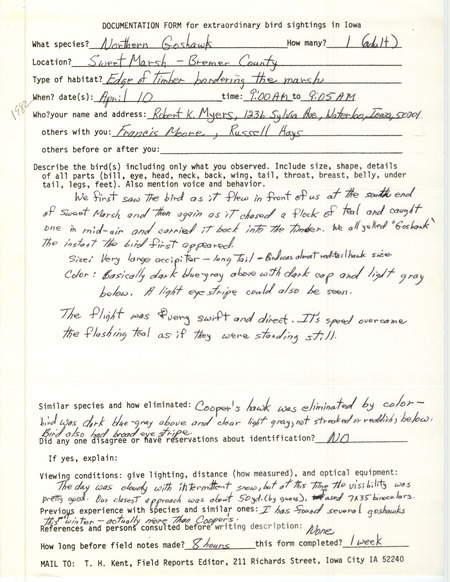 DOCUMENTATION FORM for extraordinary bird sightings in Iowa
What species? Northern Goshawk How many? 1 (adult)
Location? Sweet Marsh - Bremer County
Type of habitat? Edge of timber bordering the marsh
When? date(s): April 10 time: 9:00 AM to 9:05 AM
1982
Who? your name and address: Robert K. Myers, 1236 Sylvia Ave, Waterloo, Iowa, 50701
others with you: Francis Moore, Russell Hays
others before or after you:
Describe the bird(s) including only what you observed. Include size, shape, details
of all parts (bill, eye, head, neck, back, wing, tail, throat, breast, belly, under
tail, legs, feet). Also mention voice and behavior.
We first saw the bird as it flew in front of us at the south end
of Sweet Marsh and then again as it chased a flock of teal and caught
one in mid-air and carried it back into the timber. We all yelled "Goshawk"
the instant the bird first appeared.
Size: Very large accipiter - long tail - Bird was almost red-tail hawk size
Color: Basically dark blue-gray above with dark cap and light gray
below. A light eye stripe could also be seen.
The flight was very swift and direct. It's speed overcame
the flashing teal as if they were standing still.
Similar species and how eliminated: Cooper's hawk was eliminated by color -
bird was dark blue-gray above and clear light gray, not streaked or reddish, below.
Bird also had broad eye stripe
Did any one disagree or have reservations about identification? NO
If yes, explain:
Viewing conditions: give lighting, distance (how measured), and optical equipment:
The day was cloudy with intermittent snow, but at this time the visibility was
pretty good. Our closest approach was about 50 yd. (by guess). used 7x35 binoculars.
Previous experience with species and similar ones: I has found several goshawks
this winter - actually more than Cooper's.
References and persons consulted before writing description: None
How long before field notes made? 8 hours this form completed? 1 week
MAIL TO: T. H. Kent, Field Reports Editor, 211 Richards Street, Iowa City IA 52240